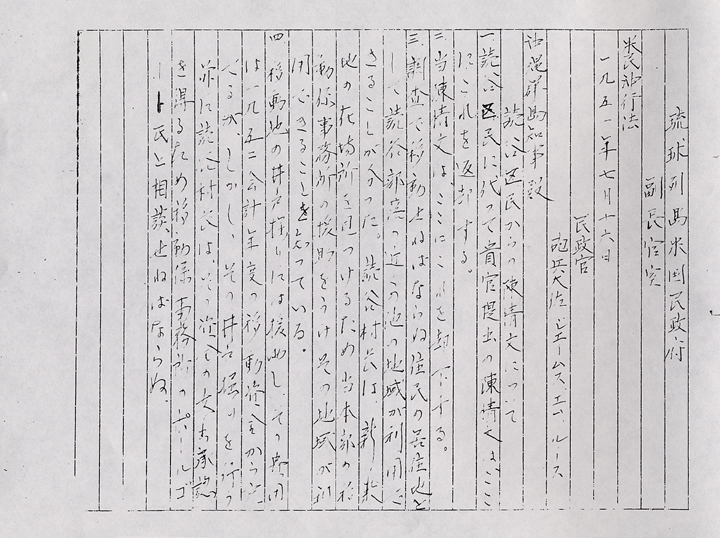 琉球列島米国民政府
副長官室
米民神行法
一九五一年七月十六日
民政官
砲兵大佐ジェームス、エム、ルース
沖縄群島知事殿
読谷区民からの陳情文について
一、読谷区民に代って貴官提出の陳情文はここ
にこれを返却する。
二、当陳情文はここにこれを却下する。
三、調査で移動せねばならぬ住民の居住地と
して読谷部落の近くの他の地域が利用で
きることが分った。読谷村長は新敷
地の在場所を見つけるため当本部の移
動係事務所の援助をうけその地域が利
用できることを知っている。
四、移動地の井戸掘りには援助し、その費用
は一九五二会計年度の移動資金から出
てるが、しかし、その井戸堀りを行う
前に読谷村長は、その資金の支出承認
を得るため移動係事務所のポールゴ
ート氏と相談せねばならぬ。